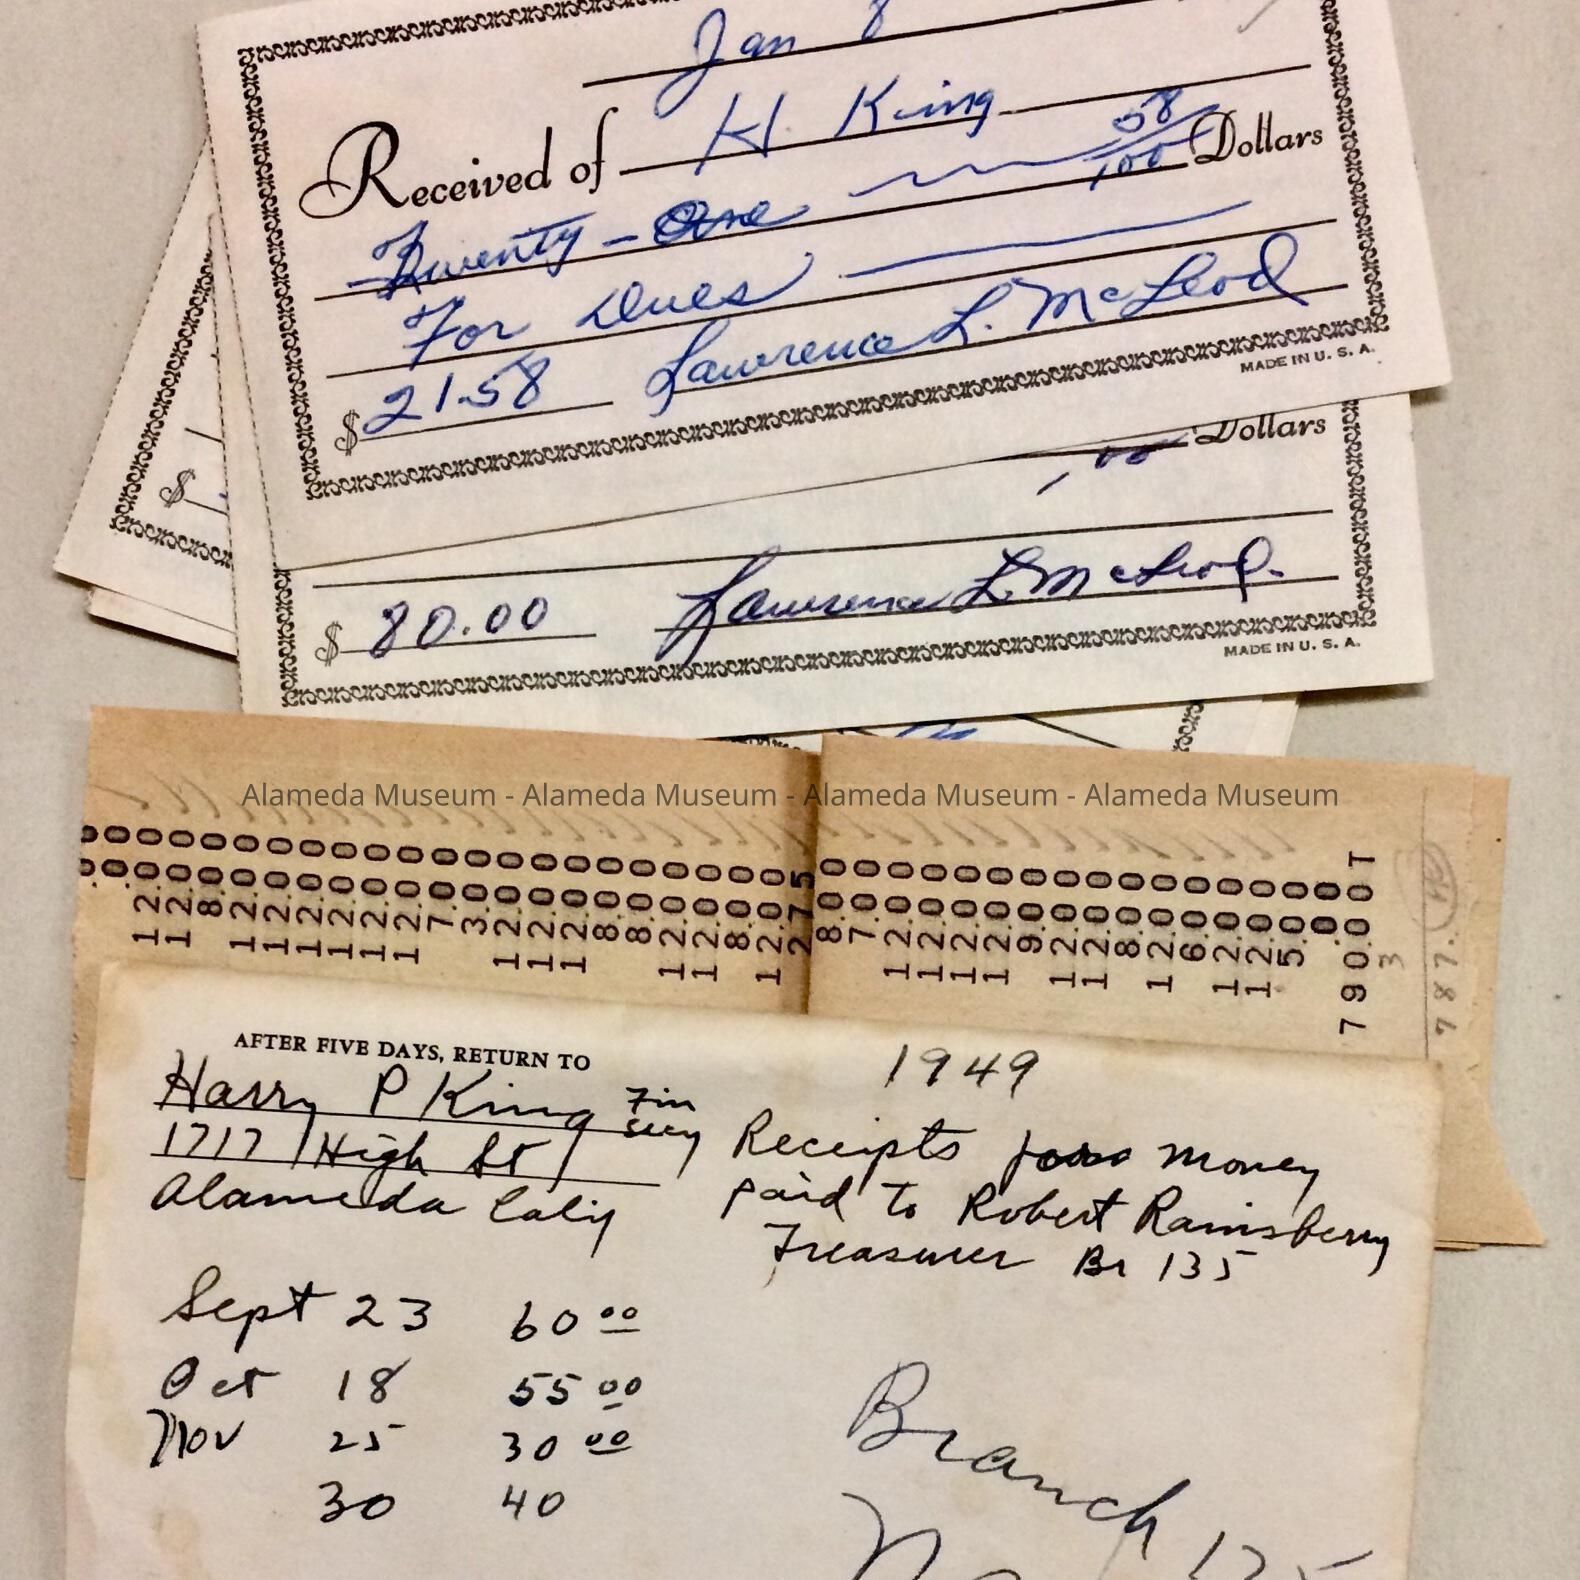 Jan 8
Received of H. King
Twenty-One 58/100 Dollars
For Dues
$ 21.58 Lawrence L. McLeod
MADE IN U. S. A.
$
100 Dollars
$ 80.00 Lawrence L. McLeod.
MADE IN U. S. A.
Alameda Museum - Alameda Museum - Alameda Museum - Alameda Museum
12.00
12.00
8.00
12.00
12.00
12.00
12.00
12.00
12.00
7.00
3.00
12.00
12.00
12.00
8.00
8.00
12.00
12.00
8.00
12.00
275
8.00
7.00
12.00
12.00
12.00
12.00
9.00
12.00
12.00
8.00
12.00
6.00
12.00
12.00
5.00
.00
790.00 T
3
787.
AFTER FIVE DAYS, RETURN TO
Harry P King Fin Secy
1717 High St
Alameda Calif
1949
Receipts for money
paid to Robert Rainsberry
Treasurer Br 135
Sept 23 60 00
Oct 18 55 00
Nov 25 30 00
30 40
Branch